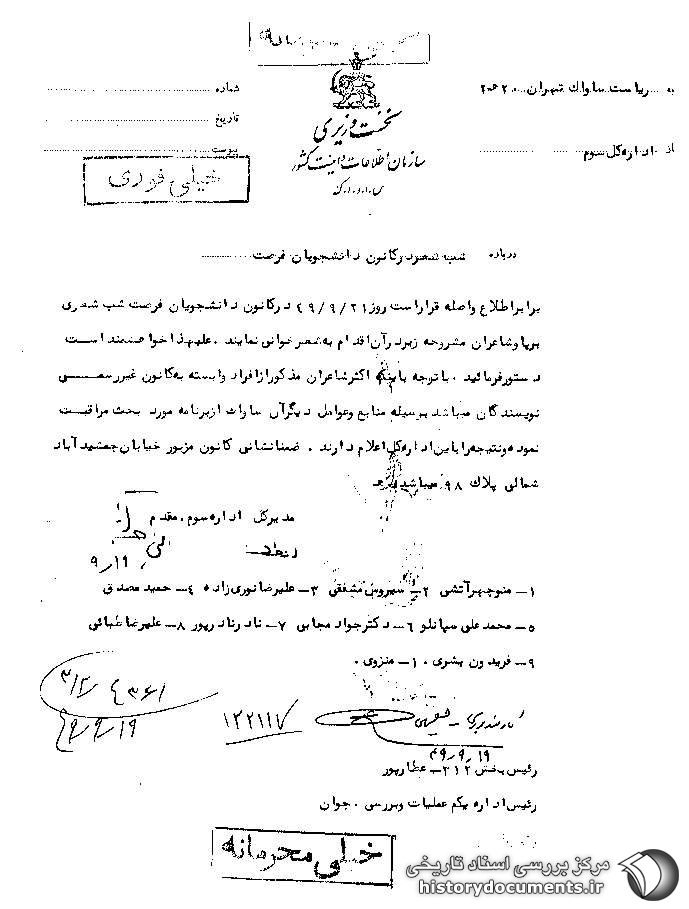 به ریاست ساواك تهران ۲۰ه۲۰
از اداره کل سوم
نخست وزیری
سازمان اطلاعات و امنیت کشور
س.ا.و.ا.ک
شماره
تاریخ
پیوست
خیلی فوری
درباره شب شعر در کانون دانشجویان فرصت
برابر اطلاع واصله قرار است روز ۴۹/۹/۲۱ در کانون دانشجویان فرصت شب شعری
برپا و شاعران مشروحه زیر در آن اقدام به شعر خوانی نمایند . علیهذا خواهشمند است
دستور فرمائید . با توجه باینکه اکثر شاعران مذکور از افراد وابسته به کانون غیر رسمی
نویسندگان میباشد بوسیله منابع و عوامل دیگر آن ساواك از برنامه مورد بحث مراقبت
نموده و نتیجه را باین اداره کل اعلام دارند . ضمنا نشانی کانون مزبور خیابان جمشید آباد
شمالی پلاك ۹۸ میباشد
مدیر کل اداره سوم . مقدم
۹/۱۹
۱ـ منوچهر آتشی ۲ـ سیروس مشفقی ۳ـ علیرضا نوری زاده ۴ـ حمید مصدق
۵ـ محمد علی سپانلو ۶ـ دکتر جواد مجابی ۷ـ نادر نادرپور ۸ـ علیرضا طبائی
۹ـ فریدون بشری ۱۰ـ منزوی .
۴۳۶۱ /۳۱۲
۴۹/۹/۱۹
۱۲۲۱۱۷
۴۹/۹/۱۹
رئیس بخش ۳۱۲ـ عطارپور
رئیس اداره یکم عملیات و بررسی . جوان
خیلی محرمانه
مرکز بررسی اسناد تاریخی
historydocuments.ir